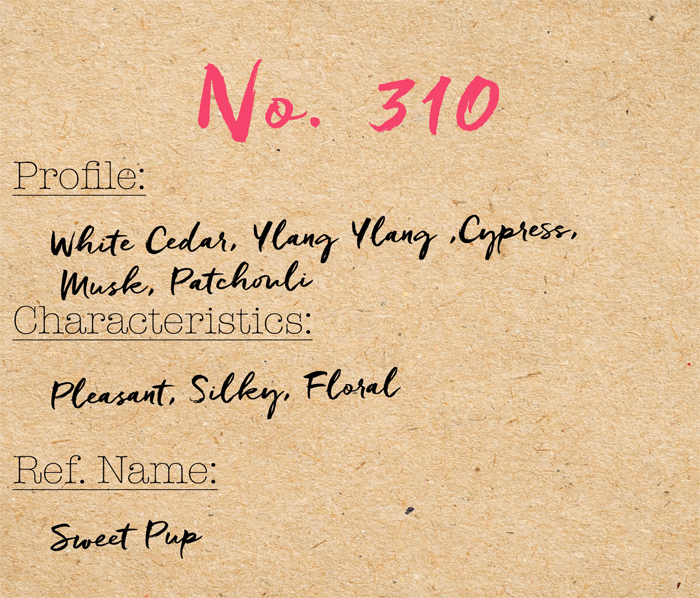 No. 310
Profile:
White Cedar, Ylang Ylang ,Cypress,
Musk, Patchouli
Characteristics:
Pleasant, Silky, Floral
Ref. Name:
Sweet Pup